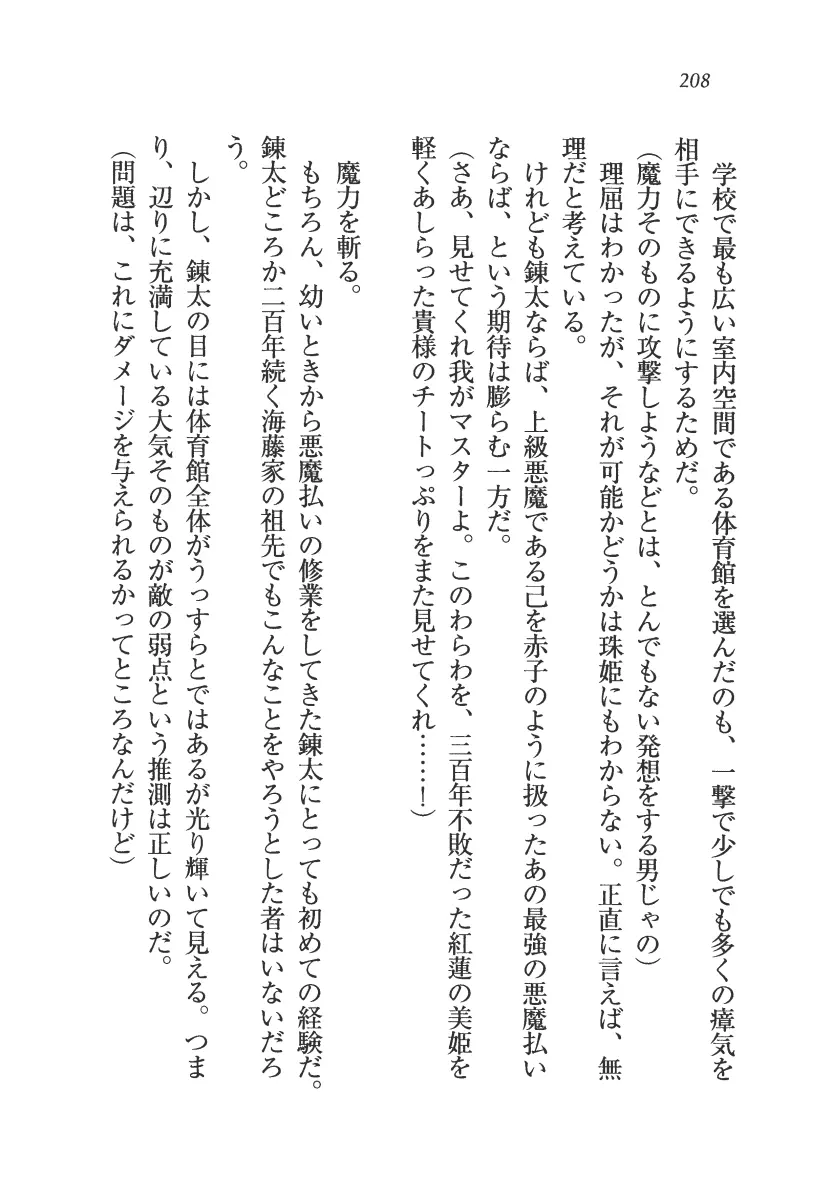 208
学校で最も広い室内空間である体育館を選んだのも、一撃で少しでも多くの瘴気を
相手にできるようにするためだ。
(魔力そのものに攻撃しようなどとは、とんでもない発想をする男じゃの)
理屈はわかったが、それが可能かどうかは珠姫にもわからない。正直に言えば、無
理だと考えている。
けれども錬太ならば、上級悪魔である己を赤子のように扱ったあの最強の悪魔払い
ならば、という期待は膨らむ一方だ。
(さあ、見せてくれ我がマスターよ。このわらわを、三百年不敗だった紅蓮の美姫を
軽くあしらった貴様のチートっぷりをまた見せてくれ……！)
魔力を斬る。
もちろん、幼いときから悪魔払いの修業をしてきた錬太にとっても初めての経験だ。
錬太どころか二百年続く海藤家の祖先でもこんなことをやろうとした者はいないだろ
う。
しかし、錬太の目には体育館全体がうっすらとではあるが光り輝いて見える。つま
り、辺りに充満している大気そのものが敵の弱点という推測は正しいのだ。
(問題は、これにダメージを与えられるかってところなんだけど)